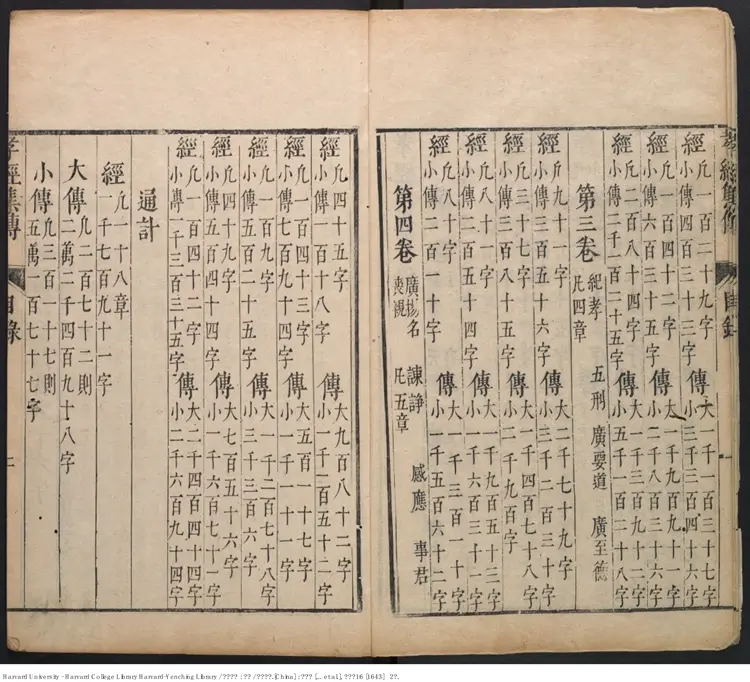 孝經集傳 目錄
經凡一百二十九字 傳大一千一百三十七字
小傳四百三十三字 小三千三百四十六字
經凡一百四十二字 傳大一千九百九十一字
小傳六百三十五字 小二千八百三十六字
經凡一百八十四字 傳大一千三百九十二字
小傳二千一百二十五字 小五千一百二十八字
第三卷 紀孝 五刑 廣要道 廣至德
凡四章
經凡九十一字 傳大二千七十九字
小傳三百五十六字 小三千二百三十字
經凡三十七字 傳大一千四百七十八字
小傳三百八十五字 小二千九百字
經凡八十一字 傳大一千九百五十三字
小傳二百八十七字 小一千六百三十一字
經凡八十字 傳大一千三百一十字
小傳二百一十字 小一千五百六十二字
第四卷 廣揚名 諫諍 感應 事君
喪親 凡五章
經凡四十五字 傳大九百八十二字
小傳一百十八字 小一千二百五十二字
經凡一百四十三字 傳大五百一十七字
小傳七百九十字 小一千一十一字
經凡一百九字 傳大一千二百七十八字
小傳五百二十五字 小三千三百六字
經凡四十九字 傳大七百五十六字
小傳五百四十四字 小一千六百七十一字
經凡一百四十二字 傳大二千四百四十四字
小傳一千三百三十五字 小二千六百九十四字
通計
經凡一十八章
一千七百九十一字
大傳凡二百七十二則
二萬二千四百九十八字
小傳凡三百一十七則
五萬一百七十七字
孝經集傳 目錄 二
Harvard University - Harvard College Library Harvard-Yenching Library / ???? ; ?? / ????. [China] : ??? [... et al.], ???16 [1643] 2?.